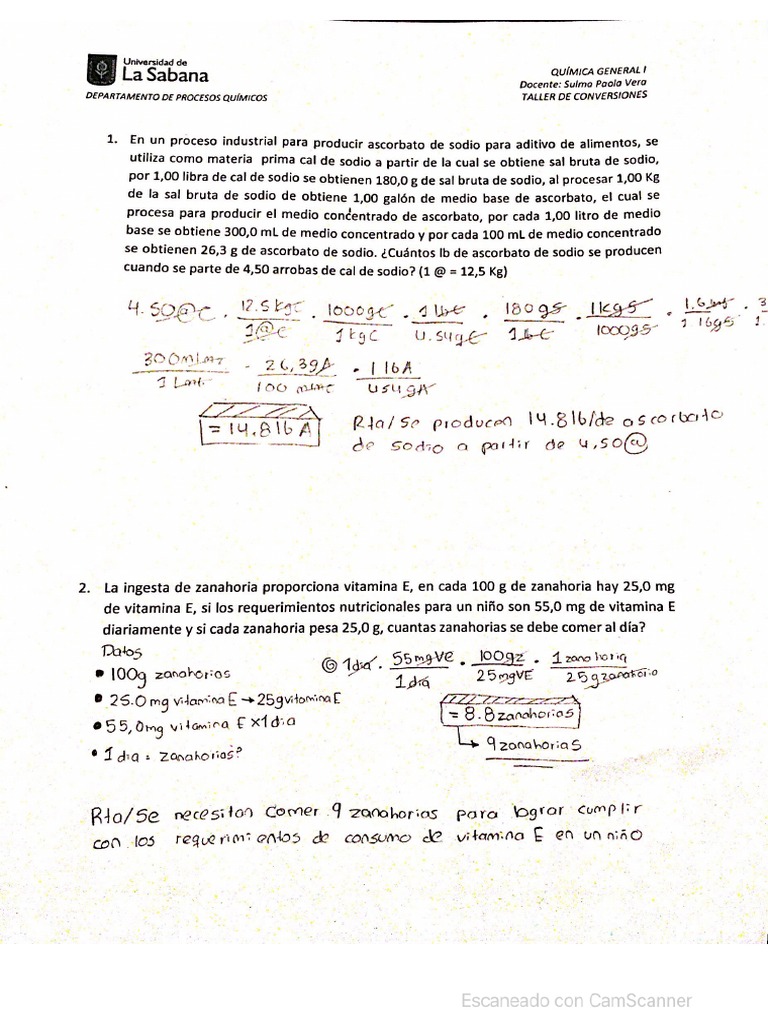 Universidad de
La Sabana
DEPARTAMENTO DE PROCESOS QUÍMICOS
QUÍMICA GENERAL I
Docente: Sulma Paola Vera
TALLER DE CONVERSIONES
1. En un proceso industrial para producir ascorbato de sodio para aditivo de alimentos, se
utiliza como materia prima cal de sodio a partir de la cual se obtiene sal bruta de sodio,
por 1,00 libra de cal de sodio se obtienen 180,0 g de sal bruta de sodio, al procesar 1,00 Kg
de la sal bruta de sodio de obtiene 1,00 galón de medio base de ascorbato, el cual se
procesa para producir el medio concentrado de ascorbato, por cada 1,00 litro de medio
base se obtiene 300,0 mL de medio concentrado y por cada 100 mL de medio concentrado
se obtienen 26,3 g de ascorbato de sodio. ¿Cuántos lb de ascorbato de sodio se producen
cuando se parte de 4,50 arrobas de cal de sodio? (1 @ = 12,5 Kg)
4.50@C . 12.5kgC . 1000gC . 1 lbC . 180gS . 1kgS .
1@C 1kgC 1lbC 1000gS
1 Lmt. 100 mlmc
26,39A . 1 lbA
= 14.8 lb A
Rta/Se producen 14.8lb/de ascorbato
de sodio a partir de 4,50@
2. La ingesta de zanahoria proporciona vitamina E, en cada 100 g de zanahoria hay 25,0 mg
de vitamina E, si los requerimientos nutricionales para un niño son 55,0 mg de vitamina E
diariamente y si cada zanahoria pesa 25,0 g, cuantas zanahorias se debe comer al día?
Datos
• 100g zanahorias
• 25.0mg vitamina E → 25g vitamina E
• 55,0mg vitamina E x 1 dia
• 1 dia = zanahorias?
1dia . 55mgVE . 100gz . 1 zanahoria
1dia 25mgVE 25gzanahoria
= 8.8 zanahorias
9 zanahorias
Rta/Se necesitan comer 9 zanahorias para lograr cumplir
con los requerimientos de consumo de vitamina E en un niño
Escaneado con CamScanner